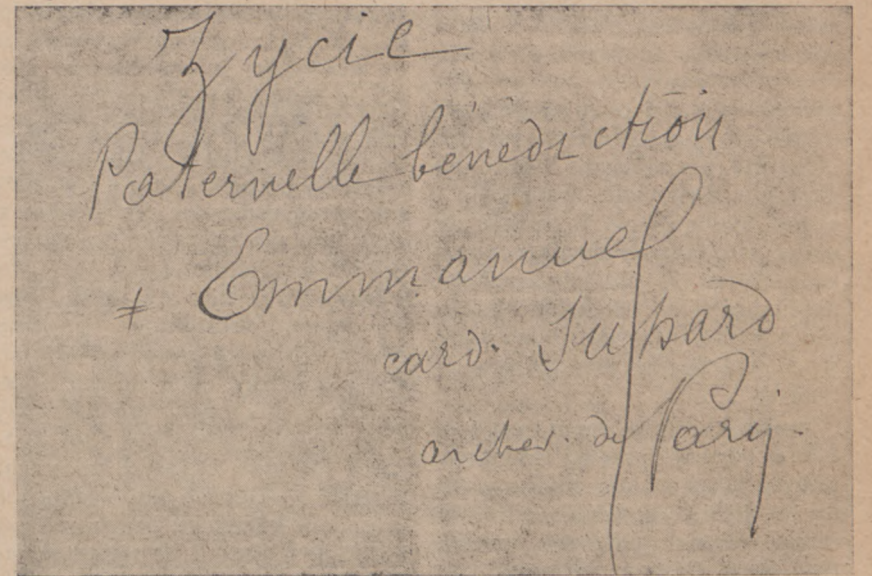 Życie
Paternelle bénédiction
+ Emmanuel
card. Suhard
archev. de Paris